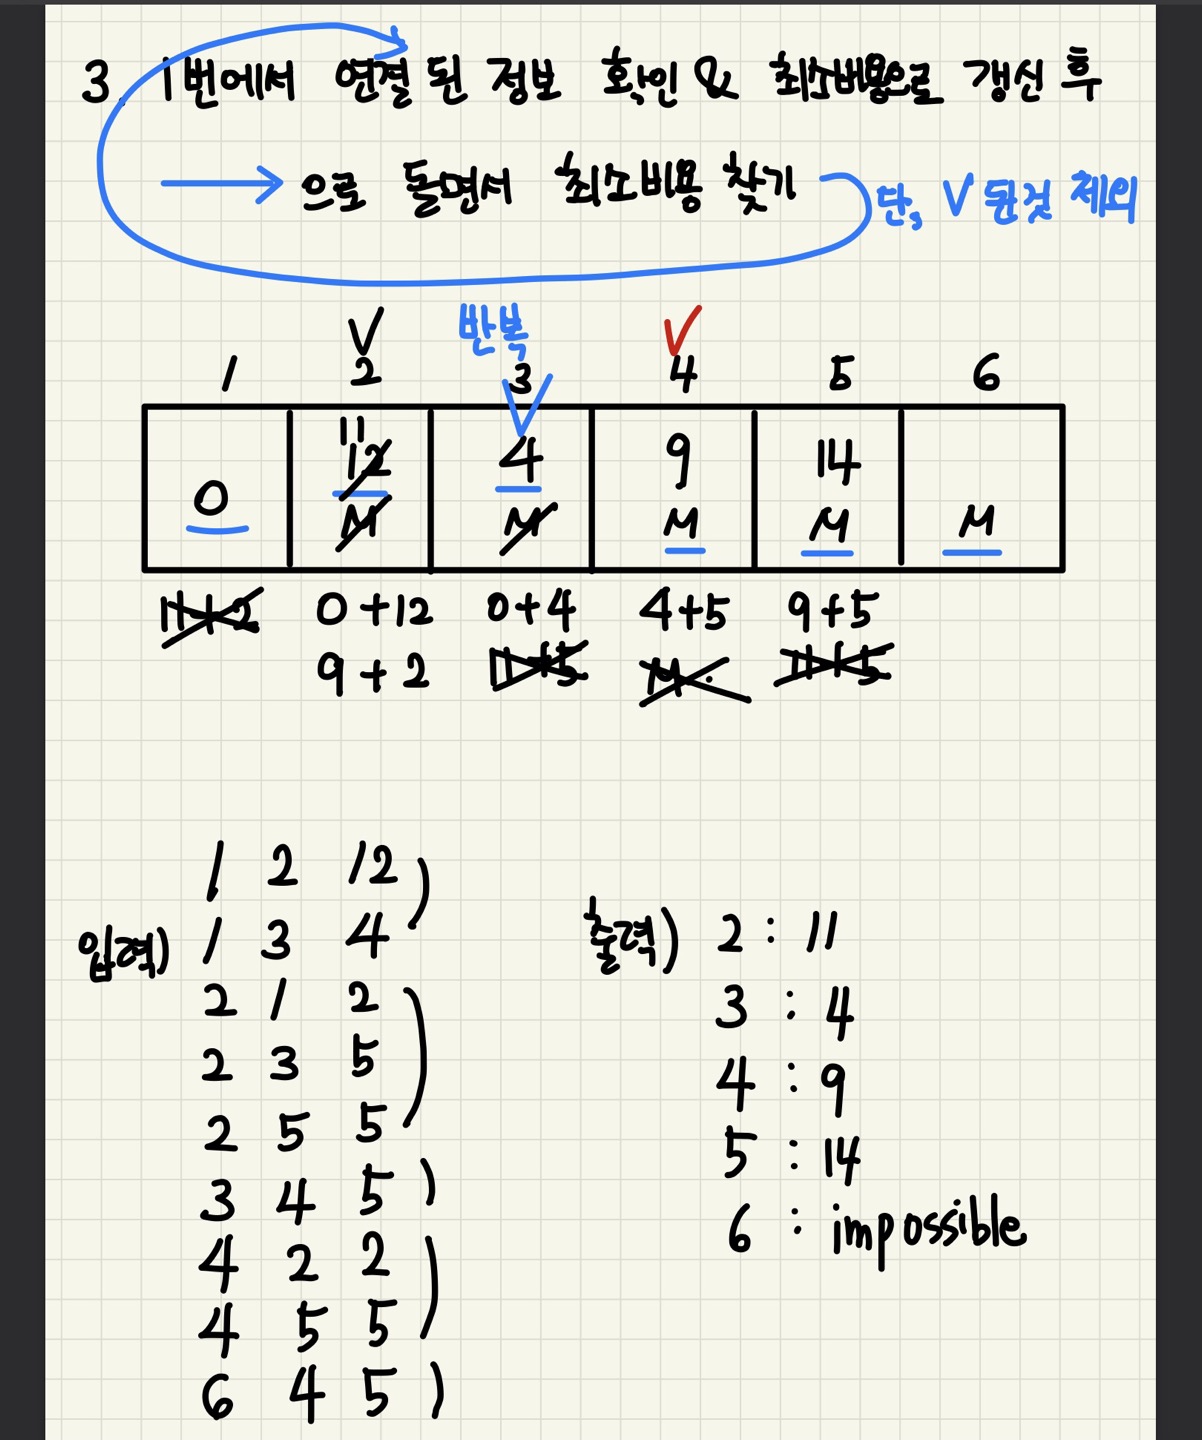 3. 1번에서 연결 된 정보 확인 & 최소비용으로 갱신 후
→ 으로 돌면서 최소비용 찾기
단, V 된것 제외
반복
V V
1 2 3 4 5 6
V
11
0 12 4 9 14
M M M M M
11+2 0+12 0+4 4+5 9+5
9+2 11+5 M. 11+5
1 2 12
입력) 1 3 4
2 1 2
2 3 5
2 5 5
3 4 5
4 2 2
4 5 5
6 4 5
출력) 2 : 11
3 : 4
4 : 9
5 : 14
6 : impossible